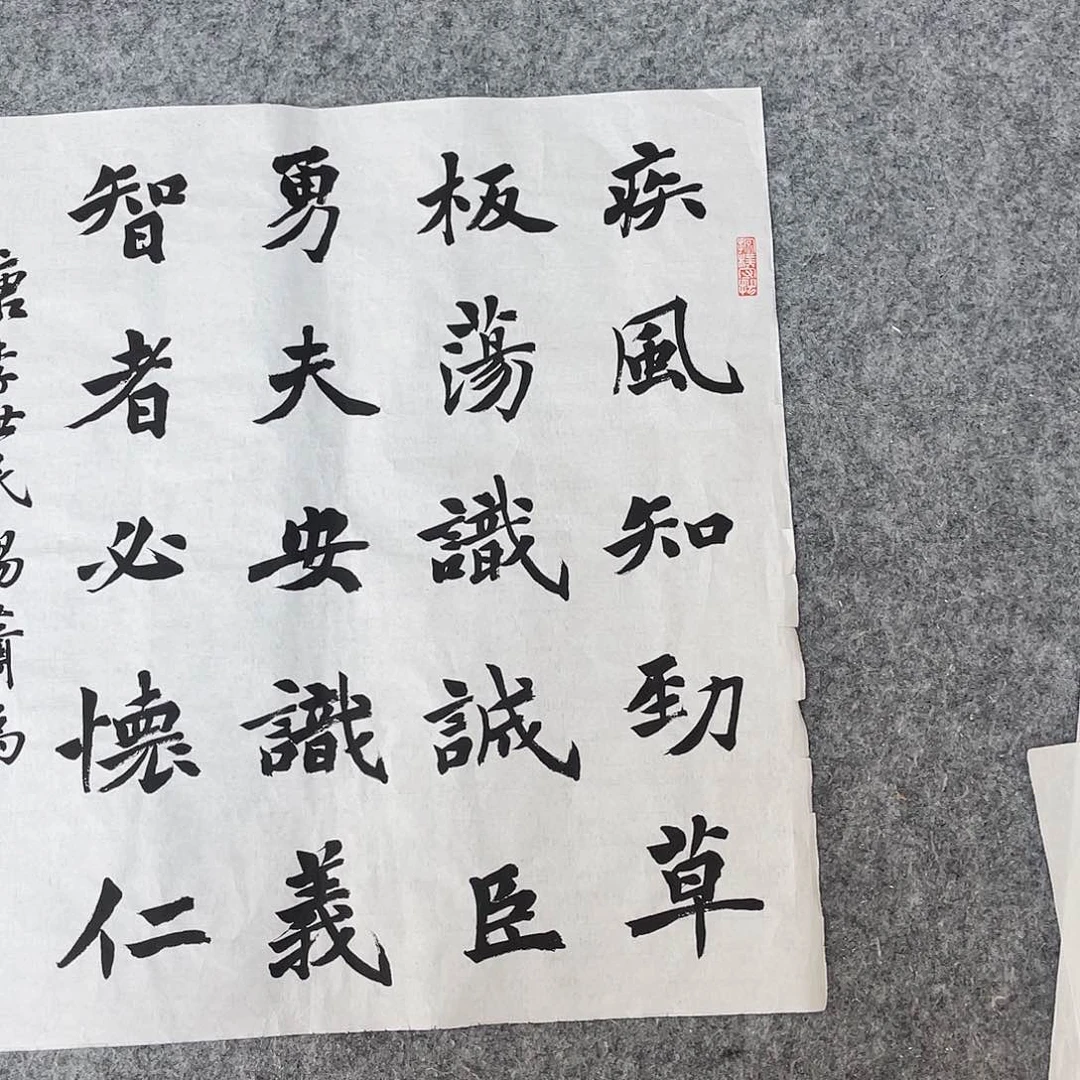 疾風知勁草
板蕩識誠臣
勇夫安識義
智者必懷仁
唐李世民賜蕭瑀